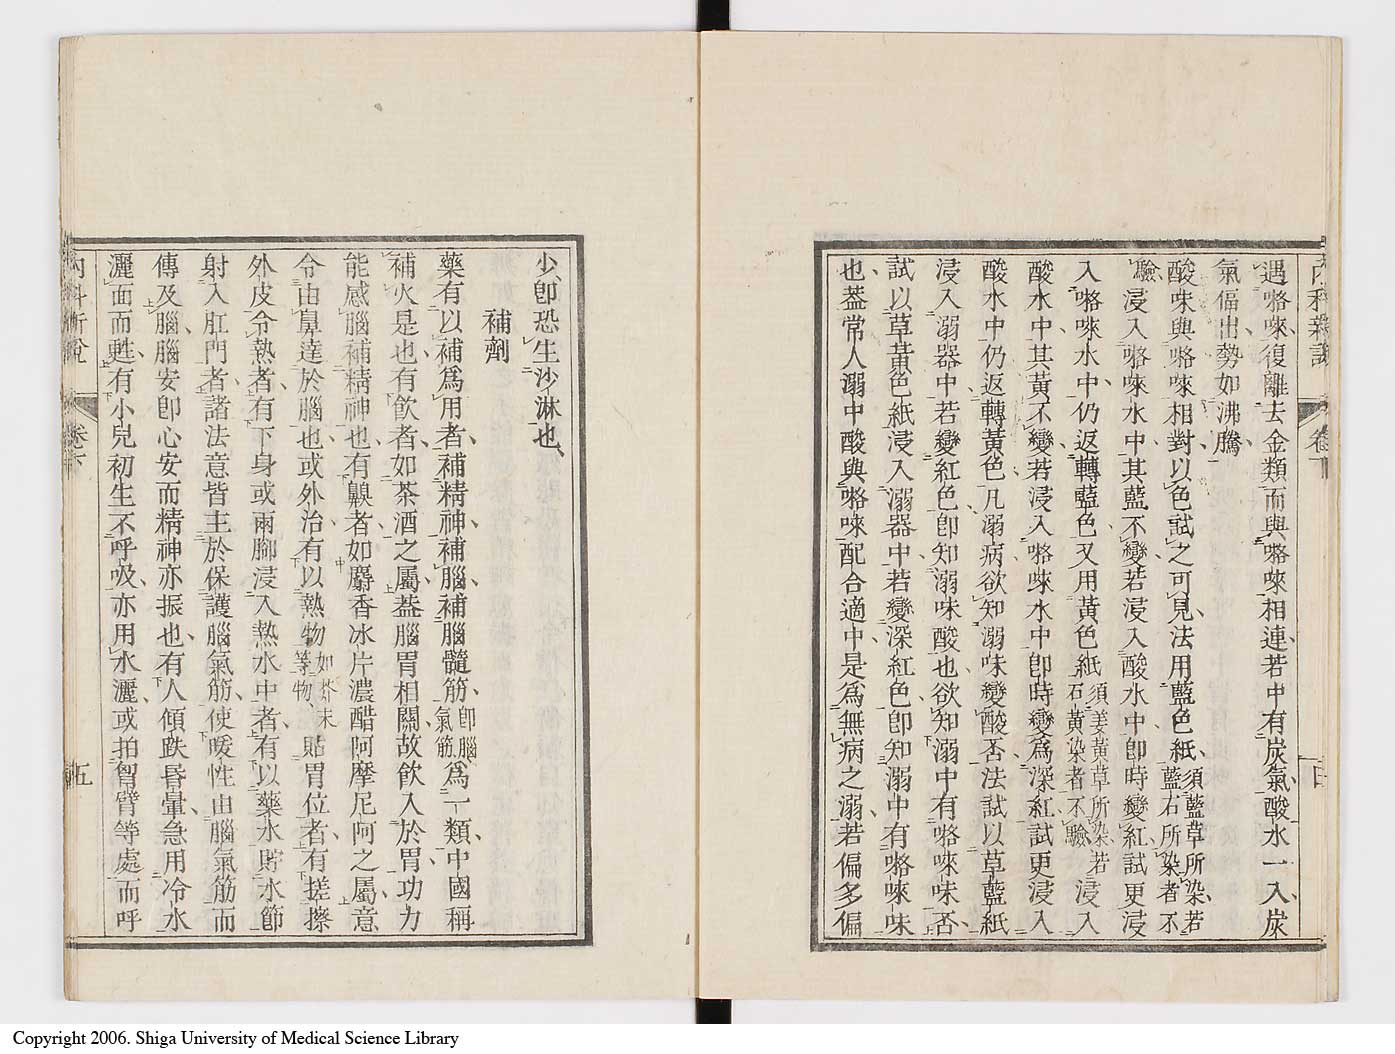 遇咯唻復離去金類而與咯唻相連若中有炭氣酸水一入炭
氣偪出勢如沸騰
酸味與咯唻相對以色試之可見法用藍色紙須藍草所染若藍石所染者不
驗浸入咯唻水中其藍不變若浸入酸水中卽時變紅試更浸
入咯唻水中仍返轉藍色又用黃色紙須姜黃草所染若石黃染者不驗浸入
酸水中其黃不變若浸入咯唻水中卽時變爲深紅試更浸入
酸水中仍返轉黃色凡溺病欲知溺味變酸否法試以草藍紙
浸入溺器中若變紅色卽知溺味酸也欲知溺中有咯唻味否
試以草黃色紙浸入溺器中若變深紅色卽知溺中有咯唻味
也葢常人溺中酸與咯唻配合適中是爲無病之溺若偏多偏
少卽恐生沙淋也
補劑
藥有以補爲用者補精神補腦補腦髓筋卽腦氣筋爲一類中國稱
補火是也有飲者如茶酒之屬葢腦胃相關故飲入於胃功力
能感腦補精神也有齅者如麝香冰片濃醋阿摩尼阿之屬意
令由鼻達於腦也或外治有以熱物如芥末等物貼胃位者有搓擦
外皮令熱者有下身或兩腳浸入熱水中者有以藥水貯水節
射入肛門者諸法意皆主於保護腦氣筋使暖性由腦氣筋而
傳及腦腦安卽心安而精神亦振也有人傾跌昏暈急用冷水
灑面而甦有小兒初生不呼吸亦用水灑或拍胷臂等處而呼
卷下
五
Copyright 2006. Shiga University of Medical Science Library